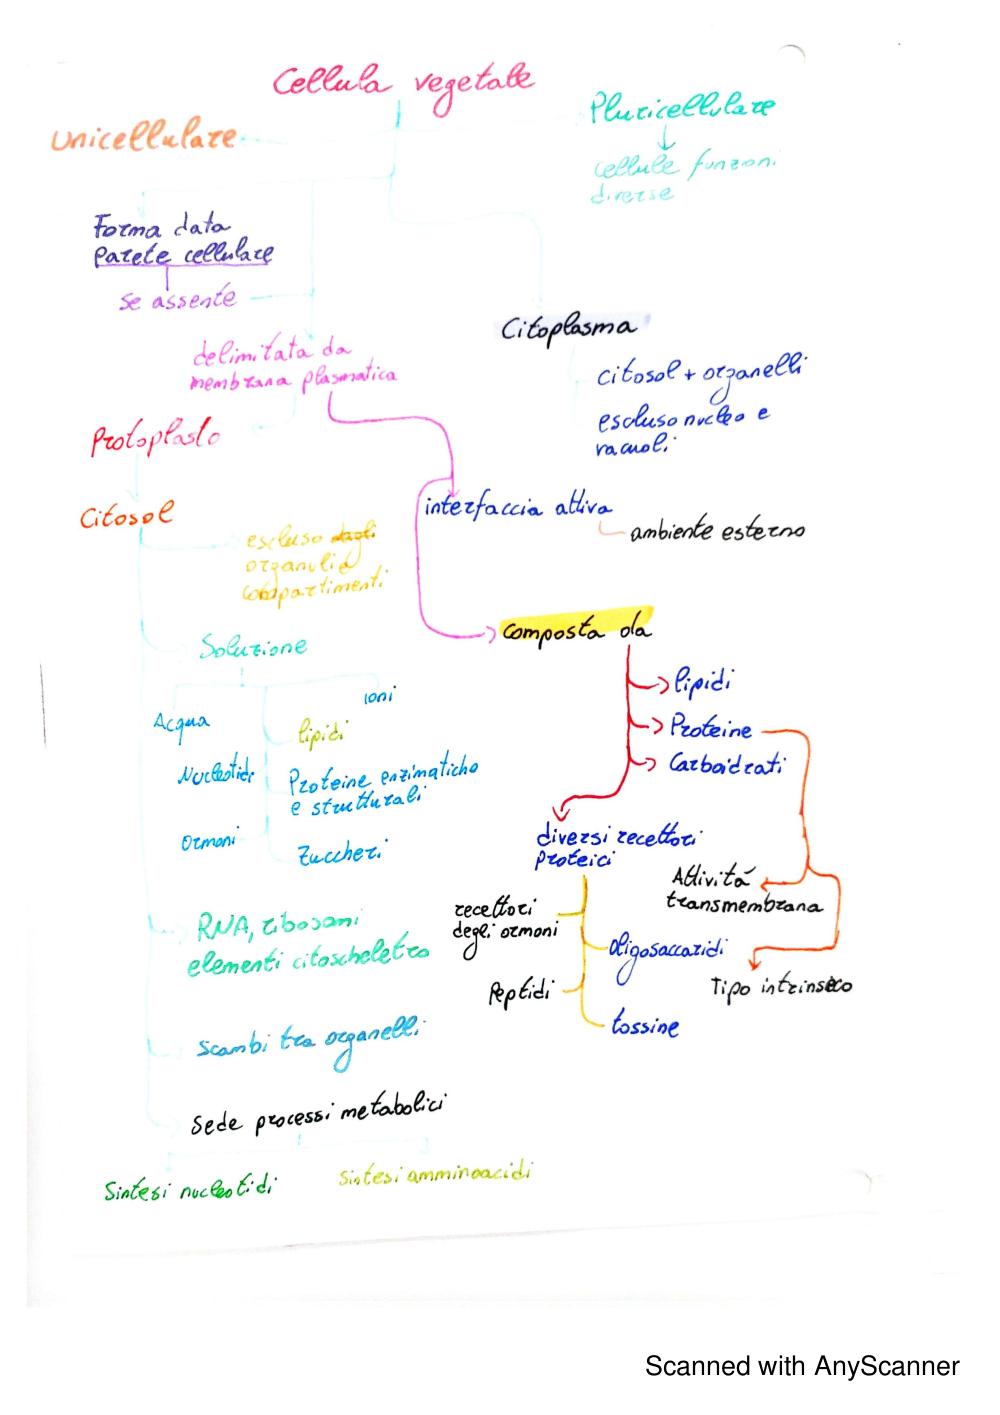 Cellula vegetale
Unicellulare
Pluricellulare
cellule funzioni
diverse
Forma data
Parete cellulare
se assente
delimitata da
membrana plasmatica
Citoplasma
citosol + organelli
escluso nucleo e
vacuoli
Protoplasto
Citosol
interfaccia attiva
ambiente esterno
escluso dagli
organuli e
compartimenti
Soluzione
Acqua
ioni
lipidi
Nucleotidi
Proteine enzimatiche
e strutturali
Ormoni
Zuccheri
composta da
lipidi
Proteine
Carboidrati
diversi recettori
proteici
Attività
transmembrana
Tipo intrinseco
recettori
degli ormoni
oligosaccaridi
Peptidi
tossine
RNA, ribosomi
elementi citoscheletro
scambi tra organelli
Sede processi metabolici
Sintesi nucleotidi
Sintesi amminoacidi
Scanned with AnyScanner